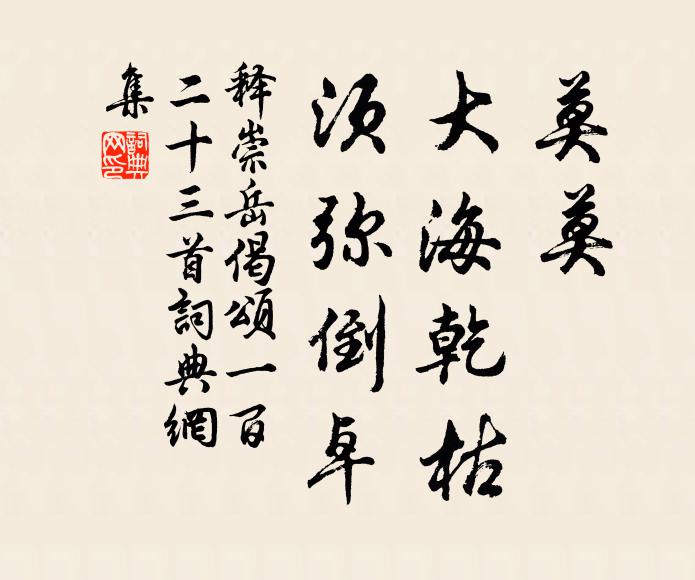 莫莫
大海乾枯
須弥倒卓
释崇岳偈頌一百
二十三首詞典網
集
詞典網印